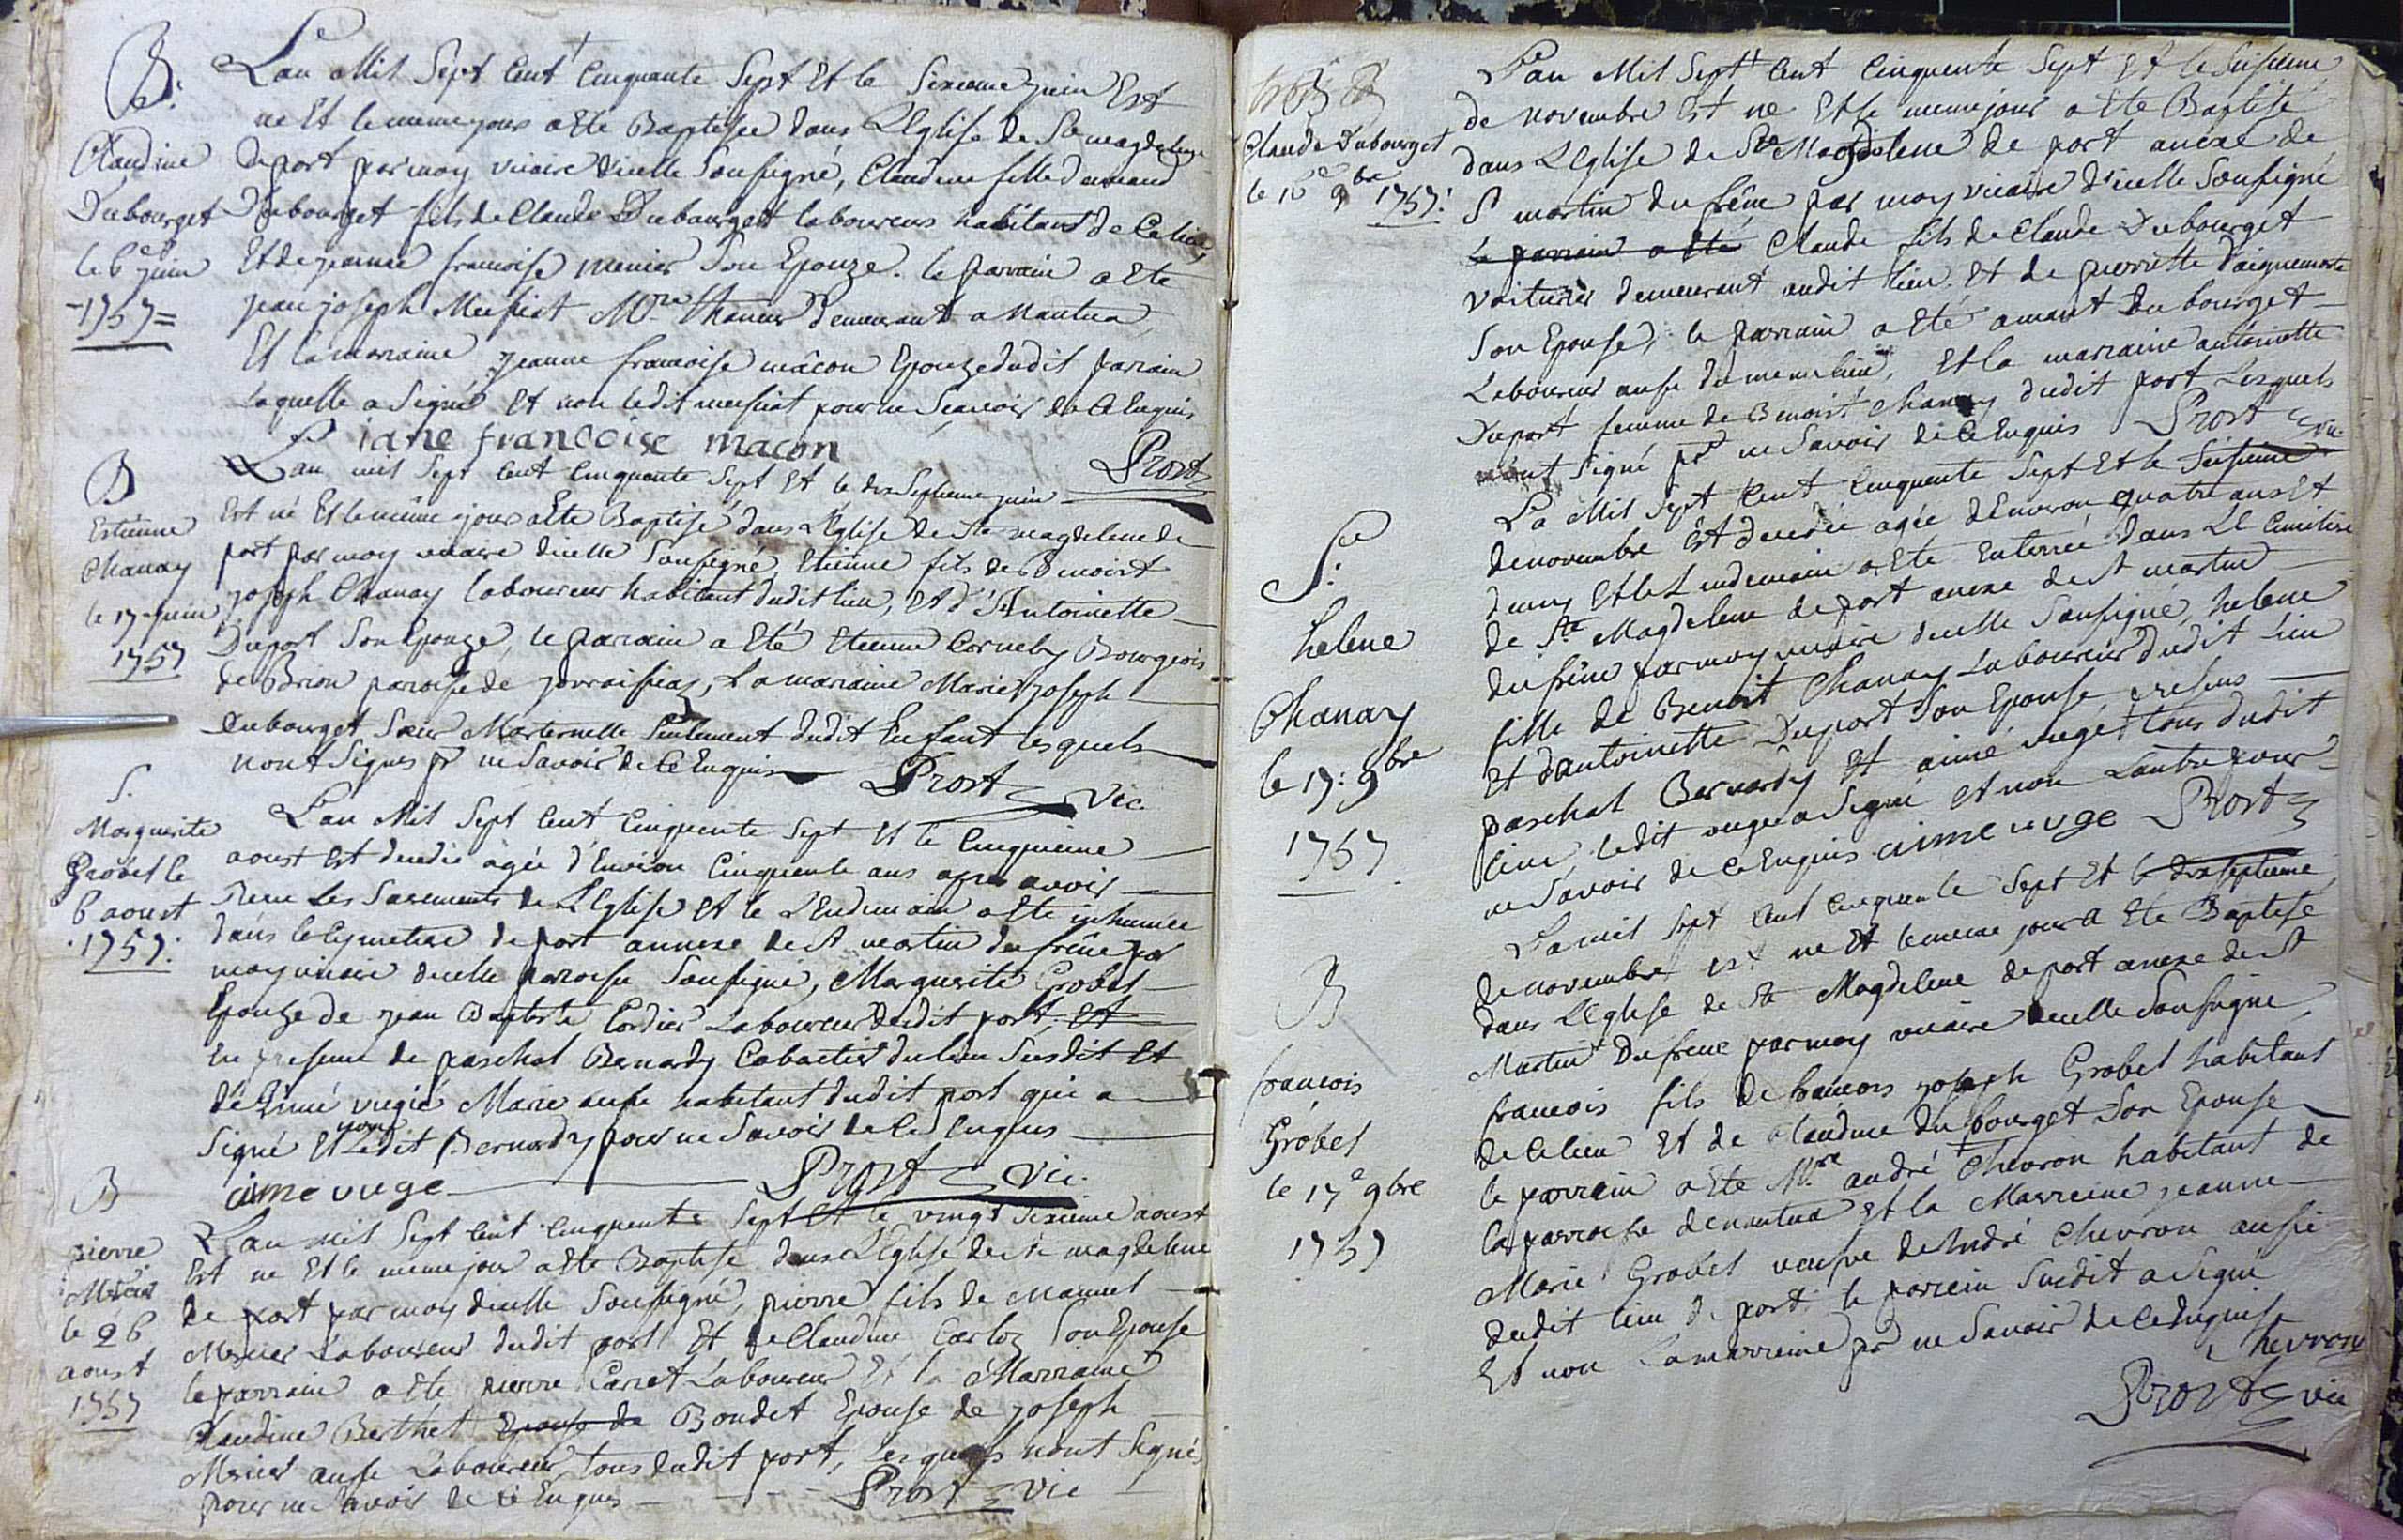 B.
Claudine
Dubourget
le 6e juin
1757
L'an Mil Sept Cent Cinquante Sept Et le Sixieme juin Est
ne Et le meme jour a Ete Baptisee dans L'Eglise de Ste magdeleine
de port par moy vicaire dicelle Soussigné, Claudine fille damand
Dubourget fils de Claude Dubourget laboureur habitant de Ce lieu,
Et de jeanne francoise mercier Son Epouze. le parrain a Ete
jean joseph Mre demeurant a Nantua
Et la marraine jeanne francoise mâcon Epouze dudit parrain
laquelle a Signé Et non ledit pour ne Scavoir de Ce Enquis
iane francoise macon
Prost
B
Estienne
Chanay
le 17 juin
1757
L'an mil Sept Cent Cinquante Sept Et le dix Septieme juin
Est né Et le même jour a Ete Baptisé dans L'Eglise de Ste magdeleine de
port par moy vicaire dicelle Soussigné, Etienne fils de Benoist
joseph Chanay laboureur habitant dudit lieu, Et d'Antoinette
Duport Son Epouze, le parrain a Eté Etienne Bourgeois
de Brion paroisse de, La maraine Marie joseph
Dubourget Sœur Marternelle Seulement dudit Enfant lesquels
nont Signes pr ne Savoir de Ce Enquis Prost vic
S.
Marguerite
Grobet le
6 aoust
1757.
L'an Mil Sept Cent Cinquante Sept Et le Cinquieme
aoust Est decedée âgée d'Environ Cinquante ans apres avoir
Receu Les Sacrements de L'Eglise Et le L'Endemain a Ete inhumée
dans le Cymetiere de port annexe de St martin du frêne par
moy vicaire dicelle paroisse Soussigné, Marguerite Grobet
Epouze de jean Baptiste Cordier Laboureur dudit port, Et
En presence de paschal Bernardy Cabartier du lieu Susdit Et
de Aimé vugé Marie aussi habitant dudit port qui a
Signé Et non ledit Bernardy pour ne Savoir de Ce Enquis
aime vuge Prost vic.
B
pierre
Mercier
le 26
aoust
1757
L'an mil Sept Cent Cinquante Sept Et le vingt Sixieme aoust
Est ne Et le meme jour a Ete Baptisé dans L'Eglise de Ste magdelene
de port par moy dicelle Soussigné, pierre fils de Manuel
Mercier Laboureur dudit port Et de Claudine Carloz Son Epouse
le parrain a Ete pierre Carret Laboureur Et la Marraine
Claudine Berthet Epouse de Boudet Epouse de joseph
Mercier aussi Laboureur tous dudit port, Lesquels nont Signé
pour ne Savoir de ce Enquis Prost vic
B
Claude Dubourget
le 16e 9bre 1757.
L'an Mil Sept Cent Cinquante Sept Et le Seisieme
de novembre Est ne Et le meme jour a Ete Baptisé
dans L'Eglise de Ste Magdelene de port anexe de
St martin du frêne par moy vicaire d'icelle Soussigné
le parrain a Eté Claude fils de Claude Dubourget
voiturier demeurant audit lieu Et de pierrette Daiguemorte
Son Epouse, le parrain a Eté amant Du bourget
Laboureur aussi du meme lieu, Et la marraine antoinette
Duport femme de Benoist Chanay dudit port Lesquels
n'ont Signé pr ne Savoir de Ce Enquis Prost vic.
S.
helene
Chanay
le 17: 9bre
1757
La Mil Sept Cent Cinquante Sept Et le Seisieme
de novembre Est decedée agée d'Environ quatre ans Et
demy Et le L'endemain a Ete Enterrée dans Le Cimetiere
de Ste Magdelene de port anexe de St martin
du frêne par moy vicaire dicelle Soussigné, helene
fille de Benoit Chanay Laboureur dudit lieu
Et d'antoinette Duport Son Epouse, presens
paschal Bernardy Et aimé vugé tous dudit
lieu, ledit vuge a Signé et non Lautre pour
ne Savoir de Ce Enquis aime vuge Prost
B
francois
Grobet
le 17e 9bre
1757
La mil Sept Cent Cinquante Sept Et le dixseptieme
de novembre est ne Et le meme jour a Ete Baptisé
dans L'Eglise de Ste Magdelene de port anexe de St
Martin Du frene par moy vicaire dicelle Soussigné,
francois fils de francois joseph Grobet habitant
de Ce lieu Et de Claudine Du bourget Son Epouse
le parrein a Ete Mre andré Chevron habitant de
la parroisse de nantua et la Marreine jeanne
Marie Grobet veufve de André Chevron aussi
dudit lieu de port le parrein Susdit a Signé
Et non La marreine pr ne Savoir de Ce Enquise
Chevron
Prost vic